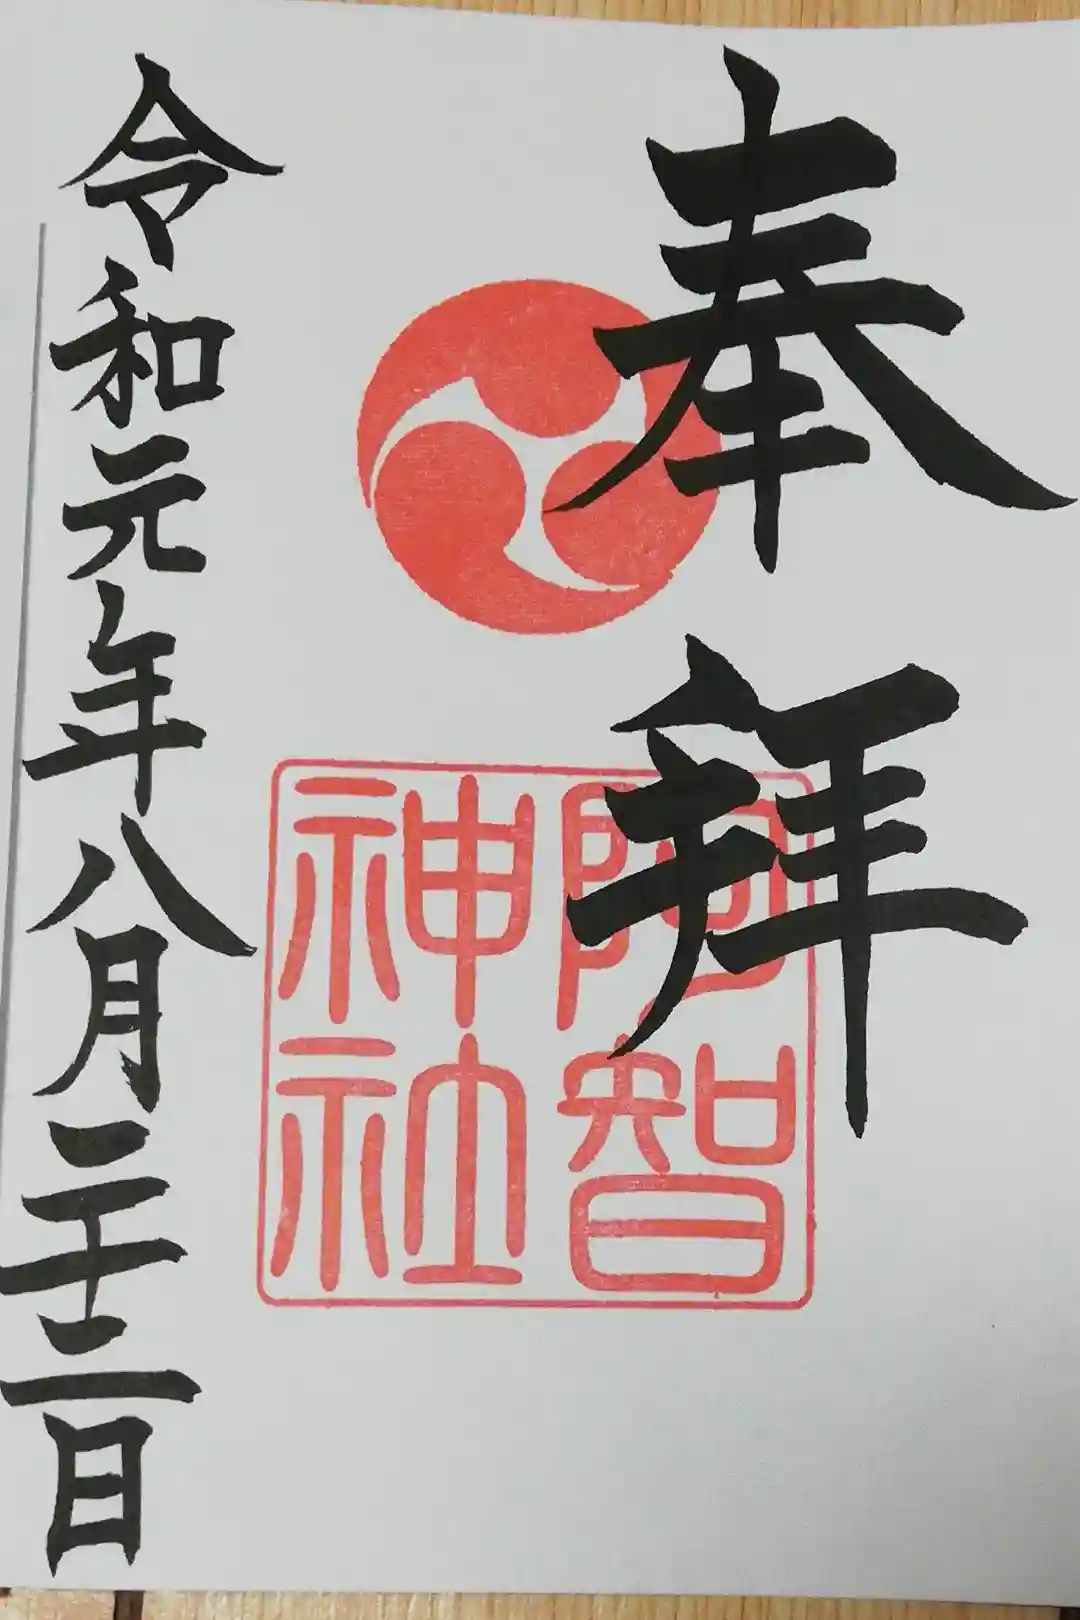 奉拝
阿智
神社
令和元年八月二十二日